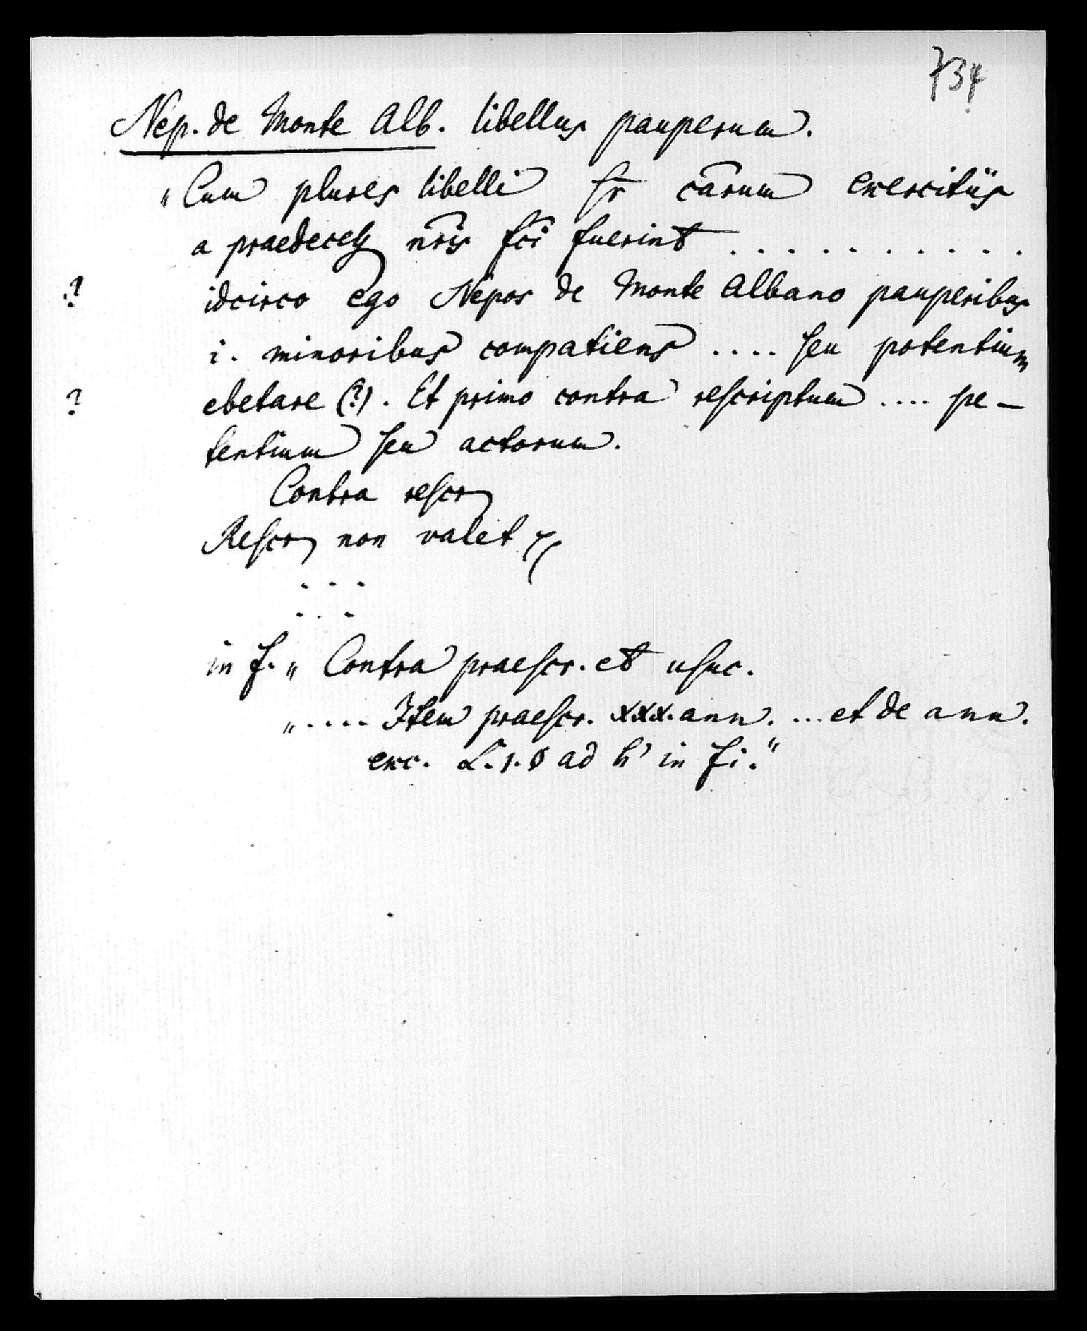 734
Nep. de Monte Alb. libellus pauperum.
„Cum plures libelli sr carum exercitiis
a praedecess nris fci fuerint . . . . . . . . . . .
? idcirco ego Nepos de Monte Albano pauperibus
i. minoribus compatiens .... seu potentium
? ebetare (?). Et primo contra rescriptum .... pe–
tentium seu actorum.
Contra rescr
Rescr non valet
. . .
. . .
in f. „ Contra praescr. et usuc.
„ .... Item praescr. xxx. ann. ... et de ann.
exc. L. 1. § ad h' in fi."